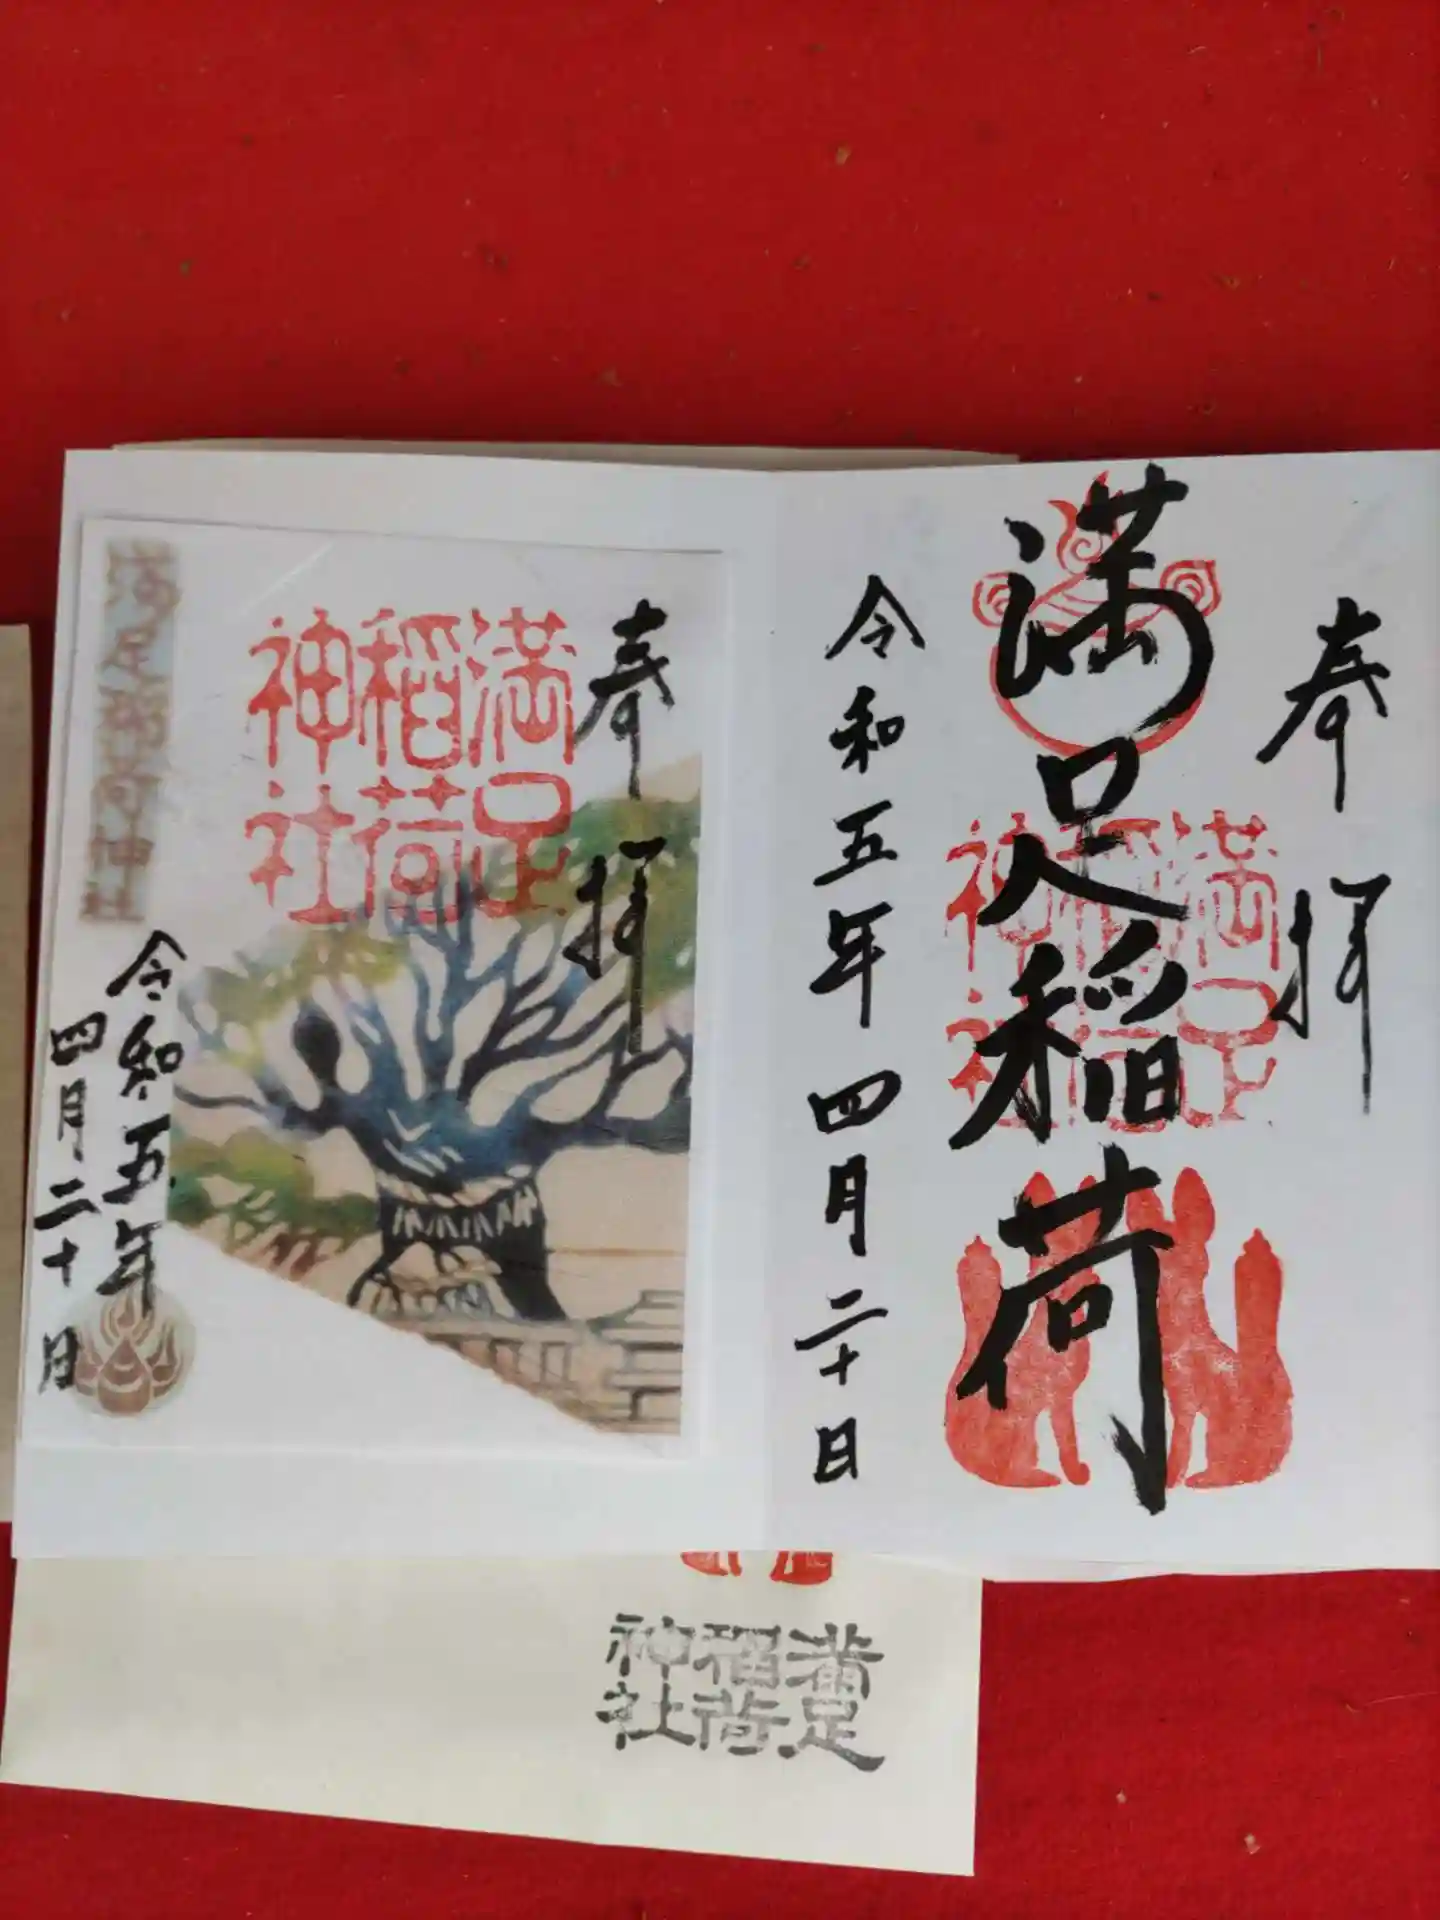 奉拝
満足稲荷
満足
稲荷
神社
令和五年四月二十日
奉拝
満足
稲荷
神社
満足稲荷神社
令和五年
四月二十日
満足
稲荷
神社